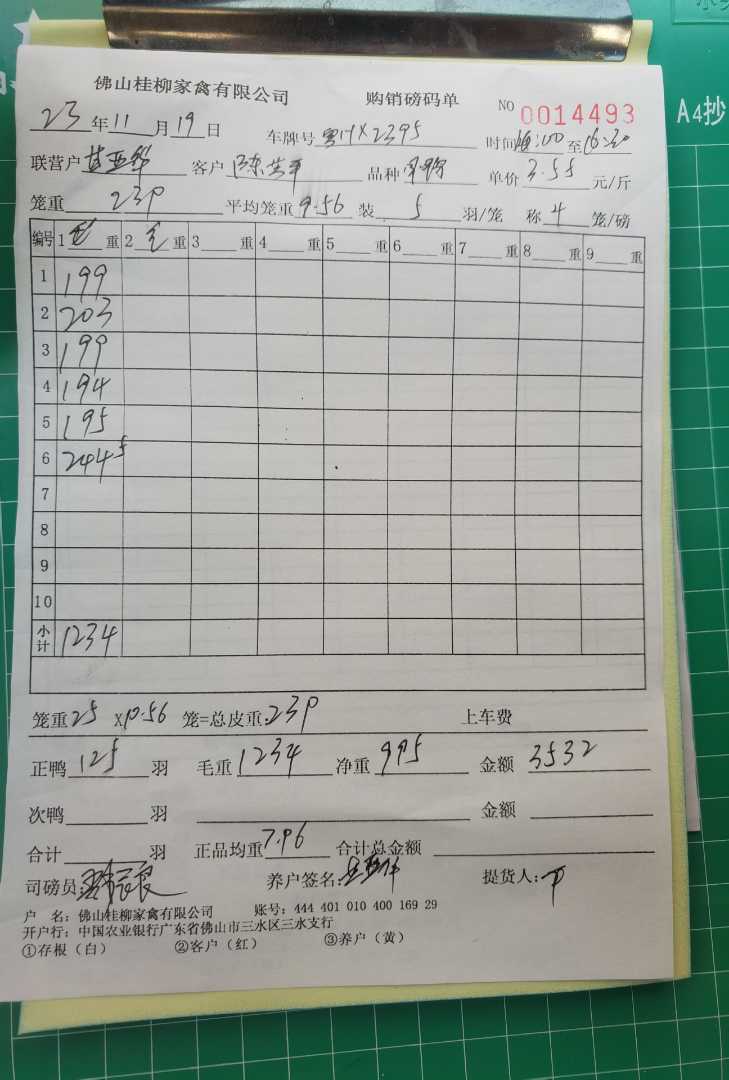 佛山桂柳家禽有限公司 购销磅码单 NO 0014493
23年11月19日 车牌号 X2395 时间 :00至16:30
联营户 客户 陈 品种 单价3.55元/斤
笼重 239 平均笼重9.56装5羽/笼 称4笼/磅
编号 1毛重 2毛重 3重 4重 5重 6重 7重 8重 9重
1 199
2 203
3 199
4 194
5 195
6 244
7
8
9
10
小计 1234
笼重25 X 9.56 笼=总皮重:239 上车费
正鸭125羽 毛重1234 净重995 金额3532
次鸭 羽 金额
合计 羽 正品均重7.96 合计总金额
司磅员: 养户签名: 提货人:
户 名:佛山桂柳家禽有限公司 账号:444 401 010 400 169 29
开户行:中国农业银行广东省佛山市三水区三水支行
①存根(白) ②客户(红) ③养户(黄)
A4抄